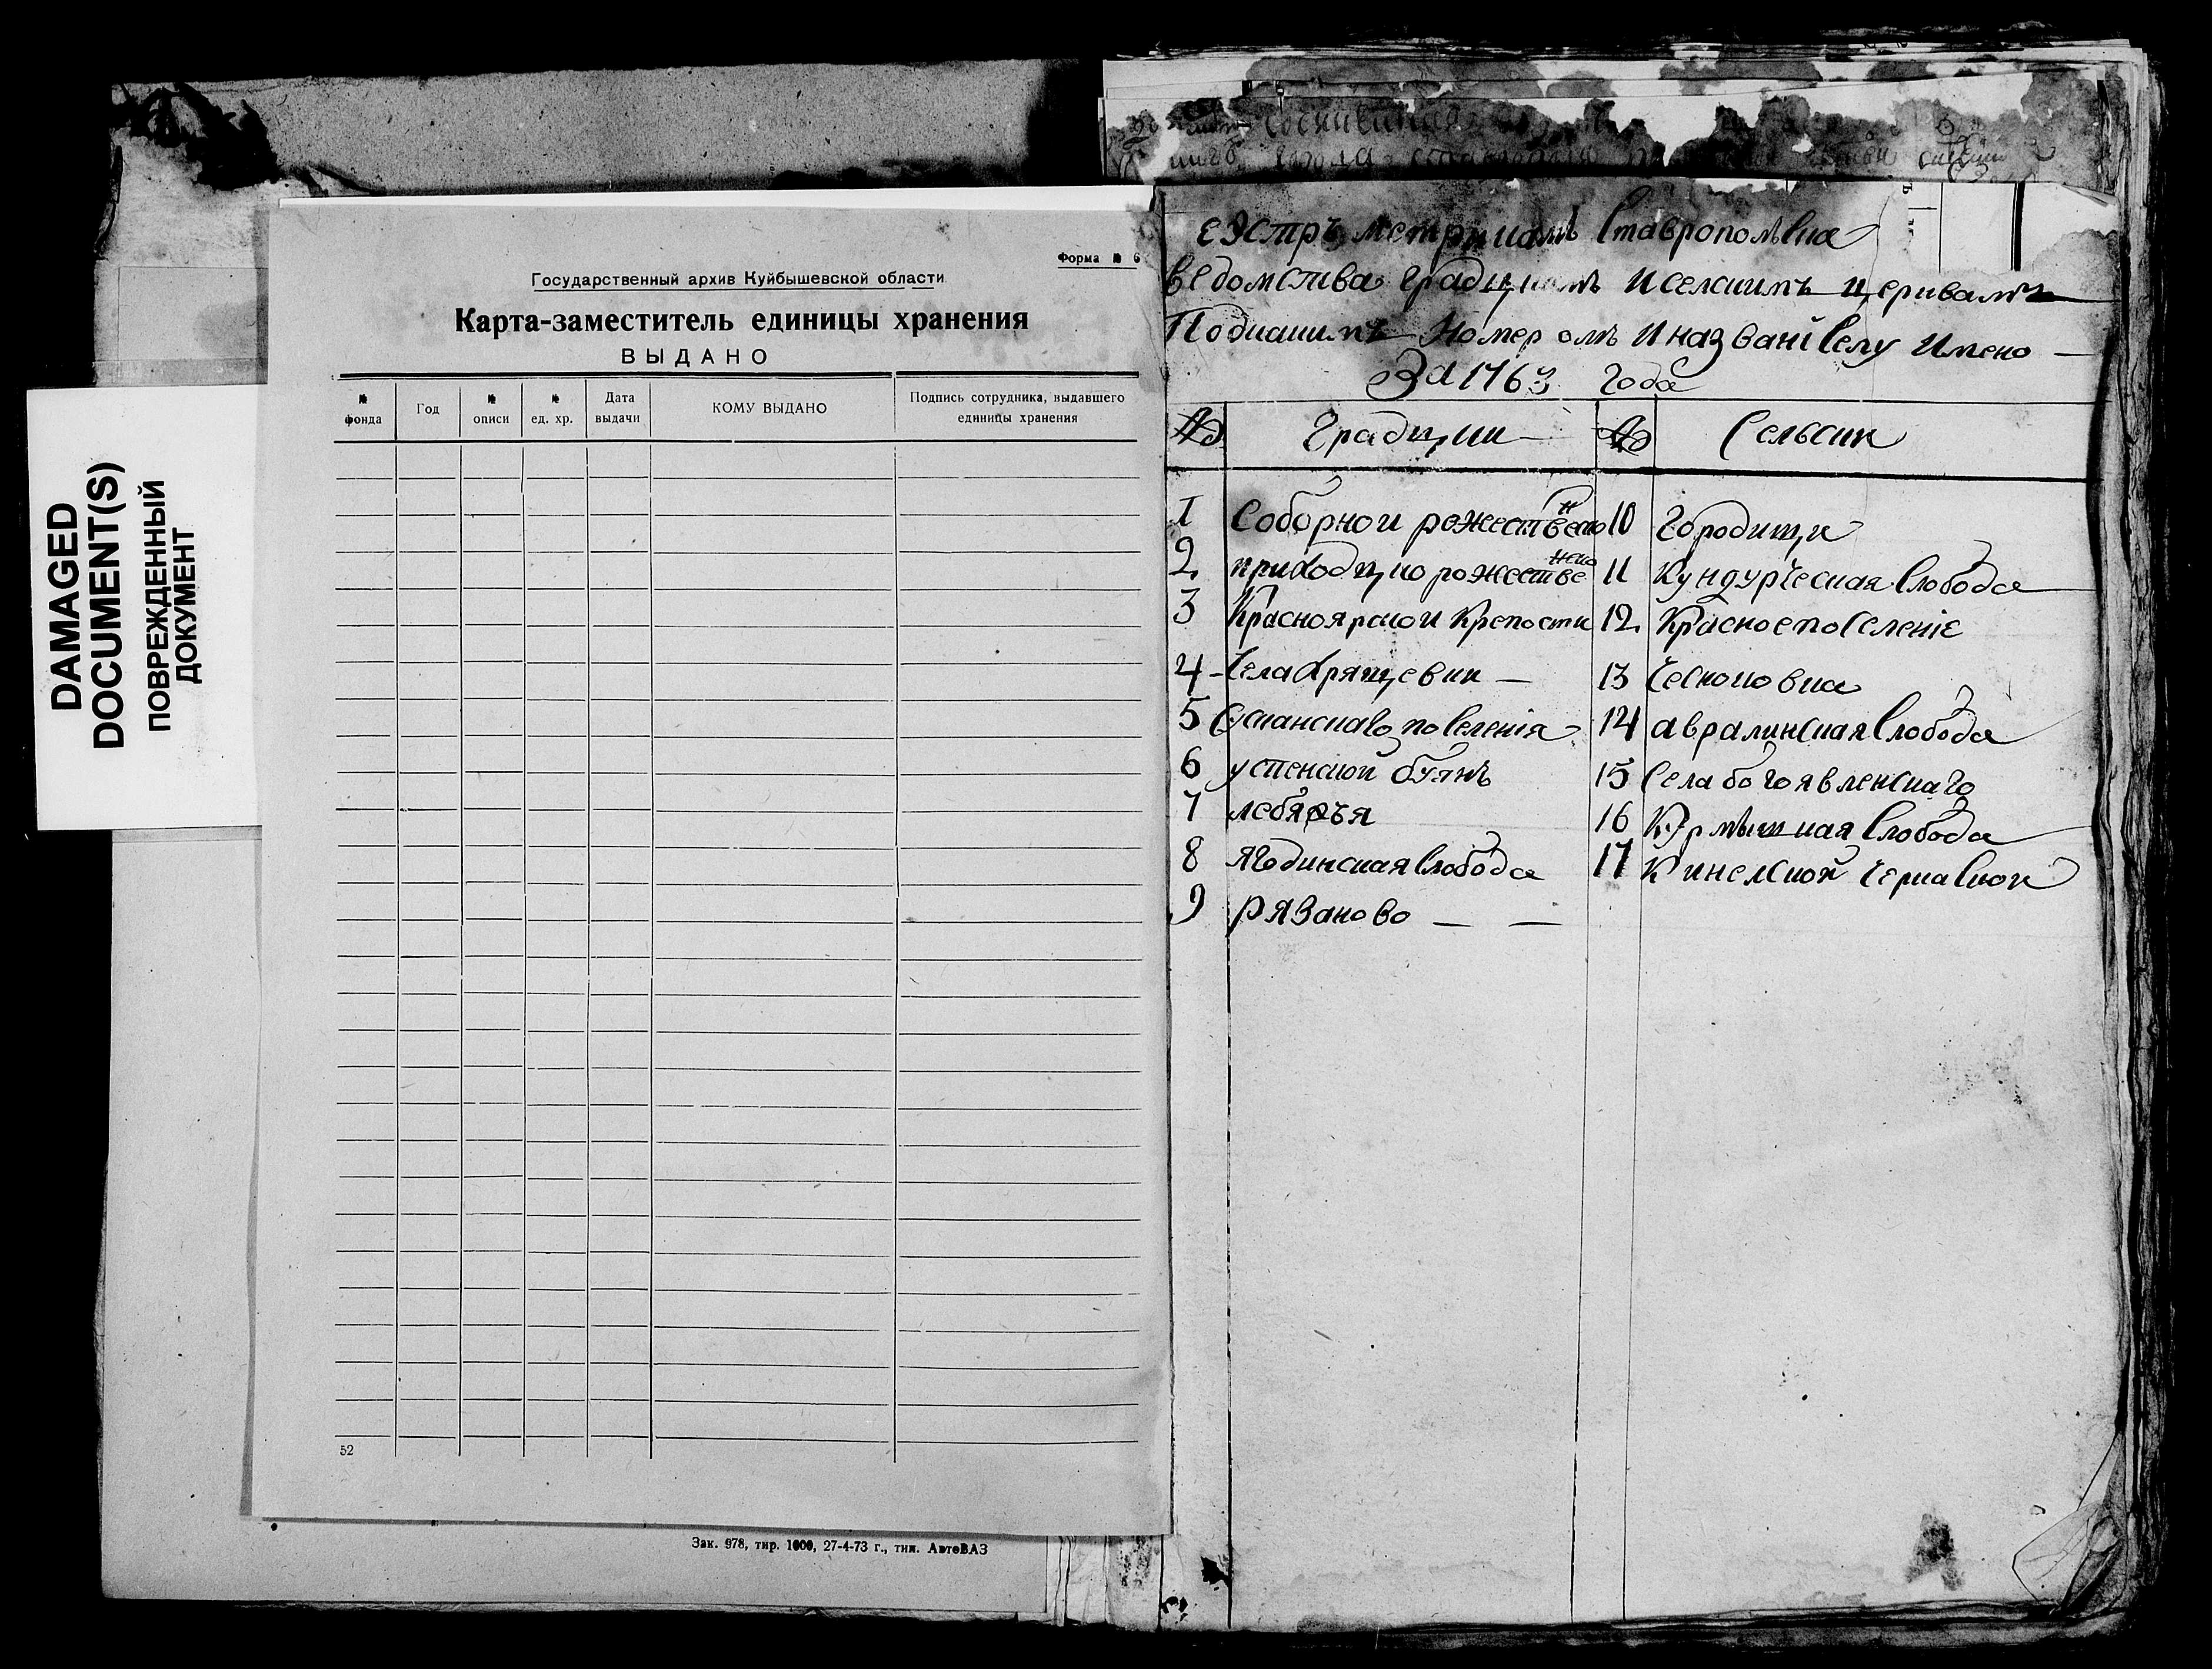 DAMAGED
DOCUMENT(S)
ПОВРЕЖДЕННЫЙ
ДОКУМЕНТ
Форма № 6
Государственный архив Куйбышевской области
Карта-заместитель единицы хранения
ВЫДАНО
№ фонда
Год
№ описи
№ ед. хр.
Дата выдачи
КОМУ ВЫДАНО
Подпись сотрудника, выдавшего единицы хранения
52
Зак. 978, тир. 1000, 27-4-73 г., тип. АвтоВАЗ
еэстръ метрикамъ Ставропольска
ведомства градцкимъ и селскимъ церквамъ
Подкакимъ Номеромъ И названi селу Имено
За 1763 года
№ Градцки № Сельски
1 Соборной рожественско 10 Городищи
2 приходцко рожественско 11 Кундурческая слобода
3 Красноярской Крепости 12 Красное поселенiе
4 Села Хрящевки 13 Чесноковка
5 Сусканскаго поселенiя 14 авралинская слобода
6 успенской буянъ 15 Села богоявленскаго
7 лебяжья 16 Курмышкая слобода
8 ягодинская слобода 17 Кинелской черкаской
9 Рязаново